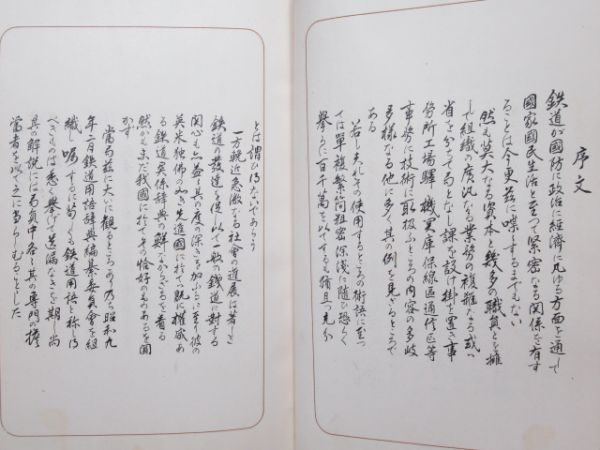 序文
鉄道が國防に政治に経済に凡ゆる方面を通して
國家國民生活と至って緊密なる関係を有す
ることは今更茲に喋々するまでもない
然も莫大なる資本と幾多の職員とを擁
して組織の厖汎なる業務の複雑なる或は
省を分って局となし課を設け掛を置き事
務所工場驛機関庫保線区通信区等
事務に技術に取扱ふところの内容の多岐
多様なる他に多く其の例を見ざるところで
ある
若し夫れその使用するところの術語に至っ
ては単複繁簡粗密深浅に随ひ恐らく
挙ぐるに百千萬を以てするも猶且つ充分
とは謂ひ得ないであらう
一方輓近急激なる社会の進展は著しく
鉄道の発達を促し以て一般の鉄道に対する
関心も亦益々其の度の深さを加ふるに至り彼の
英米独佛の如き先進國に於て既に権威あ
る鉄道関係辞典の尠なからざるを看る
然かも未だ我國に於てその恰好のものあるを聞
かず
當局茲に大いに観るところあり乃ち昭和九
年二月鉄道用語辞典編纂委員会を組
織し嘱するに苟くも鉄道用語と称し得
べきものは悉く挙げて遺漏なきを期し尚
其の解説には局員中各々其の専門の擔
當者を以て之に當らしむることとした